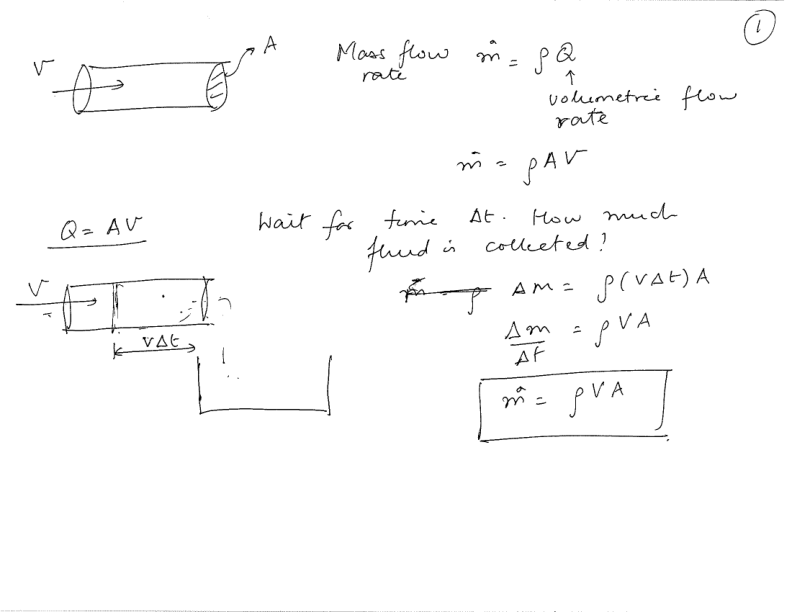 ①
V
A
Mass flow rate ṁ = ρQ
↑
volumetric flow
rate
ṁ = ρAV
Q = AV
Wait for time Δt. How much
fluid is collected?
V
VΔt
Δm = ρ(VΔt)A
Δm/Δt = ρVA
ṁ = ρVA